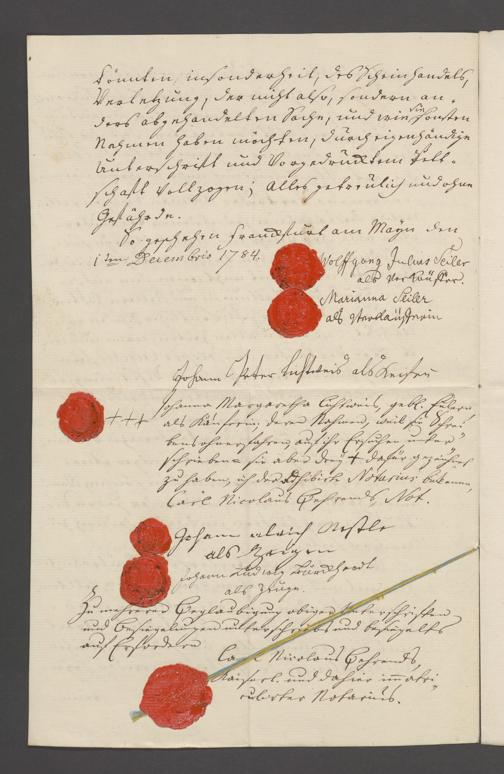 könnten, insonderheit, des Scheinhandels,
Verletzung, der nicht also, sondern an-
ders abgehandelten Sache, und wie sie sonsten
Nahmen haben möchten, durch eigenhändige
Unterschrift und Vorgedrucktem Pett-
schaft vollzogen; Alles getreulich und ohne
Gefährde.
So geschehen Franckfurt am Mayn den
1ten Decembris 1784.
Wolffgang Julius Seiler
als Verkäuffer.
Marianna Seiler
als Verkäufferin
Johann Peter als Keufer
+++
Johanna Margaretha gebl.
als Käuferin, deren Nahmen, weil sie Schrei-
bens ohnerfahren, auf ihr Ersuchen unter-
schrieben sie aber drey + dafür gezeichnet
zu haben, ich der Notarius bekenne,
Carl Nicolaus Behrends, Not.
Johann Ulrich Nestle
als Zeugen
Johann Ludwig Burckhardt
als Zeuge.
Zu mehrerer Beglaubigung obiger Unterschriften
und Besiegelungen unterschrieben und besiegelts
auf Erfordern
Carl Nicolaus Behrends,
Kaiserl. und dahier immatri-
culirter Notarius.